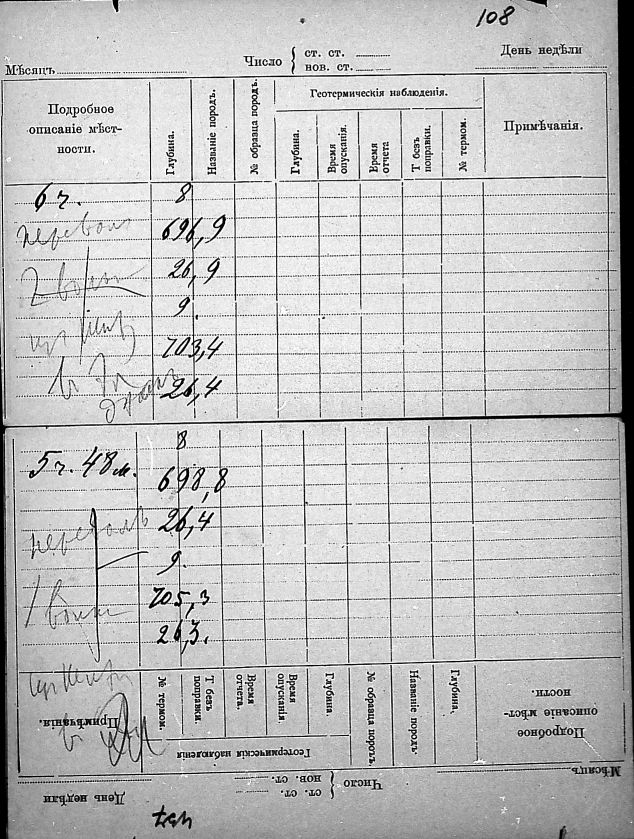 108
Мѣсяцъ
Число { ст. ст.
нов. ст.
День недѣли
Подробное
описаніе мѣст-
ности.
Глубина.
Названіе породъ.
№ образца породъ.
Геотермическія наблюденія.
Глубина.
Время
опусканія.
Время
отчета
Т безъ
поправки.
№ термом.
Примѣчанія.
6 ч. 8
696,9
26,9
9.
703,4
26,4
8
5 ч. 48 м.
698,8
26,4
9.
705,3
26,3.
Примѣчанія.
№ термом.
Т безъ
поправки.
Время
отчета.
Время
опусканія
Глубина.
Геотермическія наблюденія
№ образца породъ.
Названіе породъ.
Глубина.
Подробное
описаніе мѣст-
ности.
День недѣли
ст. ст.
нов. ст.
} Число
Мѣсяцъ